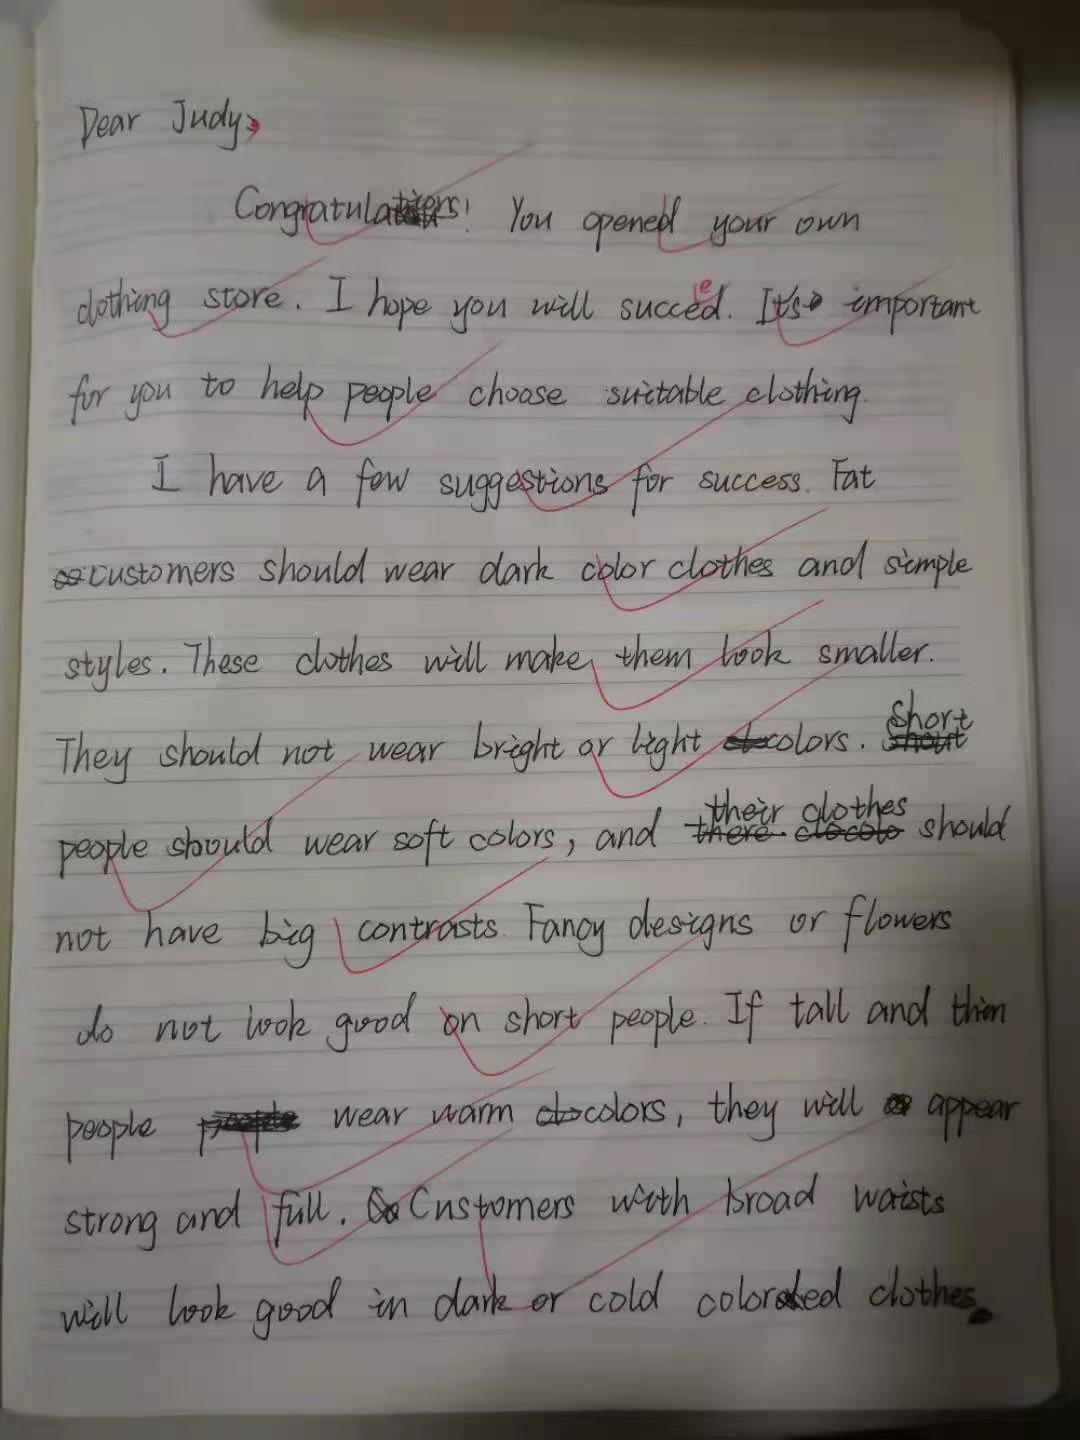 Dear Judy,
Congratulations! You opened your own
clothing store. I hope you will succeed. It's important
for you to help people choose suitable clothing.
I have a few suggestions for success. Fat
customers should wear dark color clothes and simple
styles. These clothes will make them look smaller.
They should not wear bright or light colors. Short
people should wear soft colors, and their clothes should
not have big contrasts. Fancy designs or flowers
do not look good on short people. If tall and thin
people wear warm colors, they will appear
strong and full. Customers with broad waists
will look good in dark or cold colored clothes.